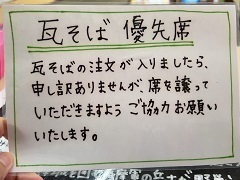 瓦そば 優先席
瓦そばの注文が入りましたら、
申し訳ありませんが、席を譲って
いただきますよう ご協力お願い
いたします。